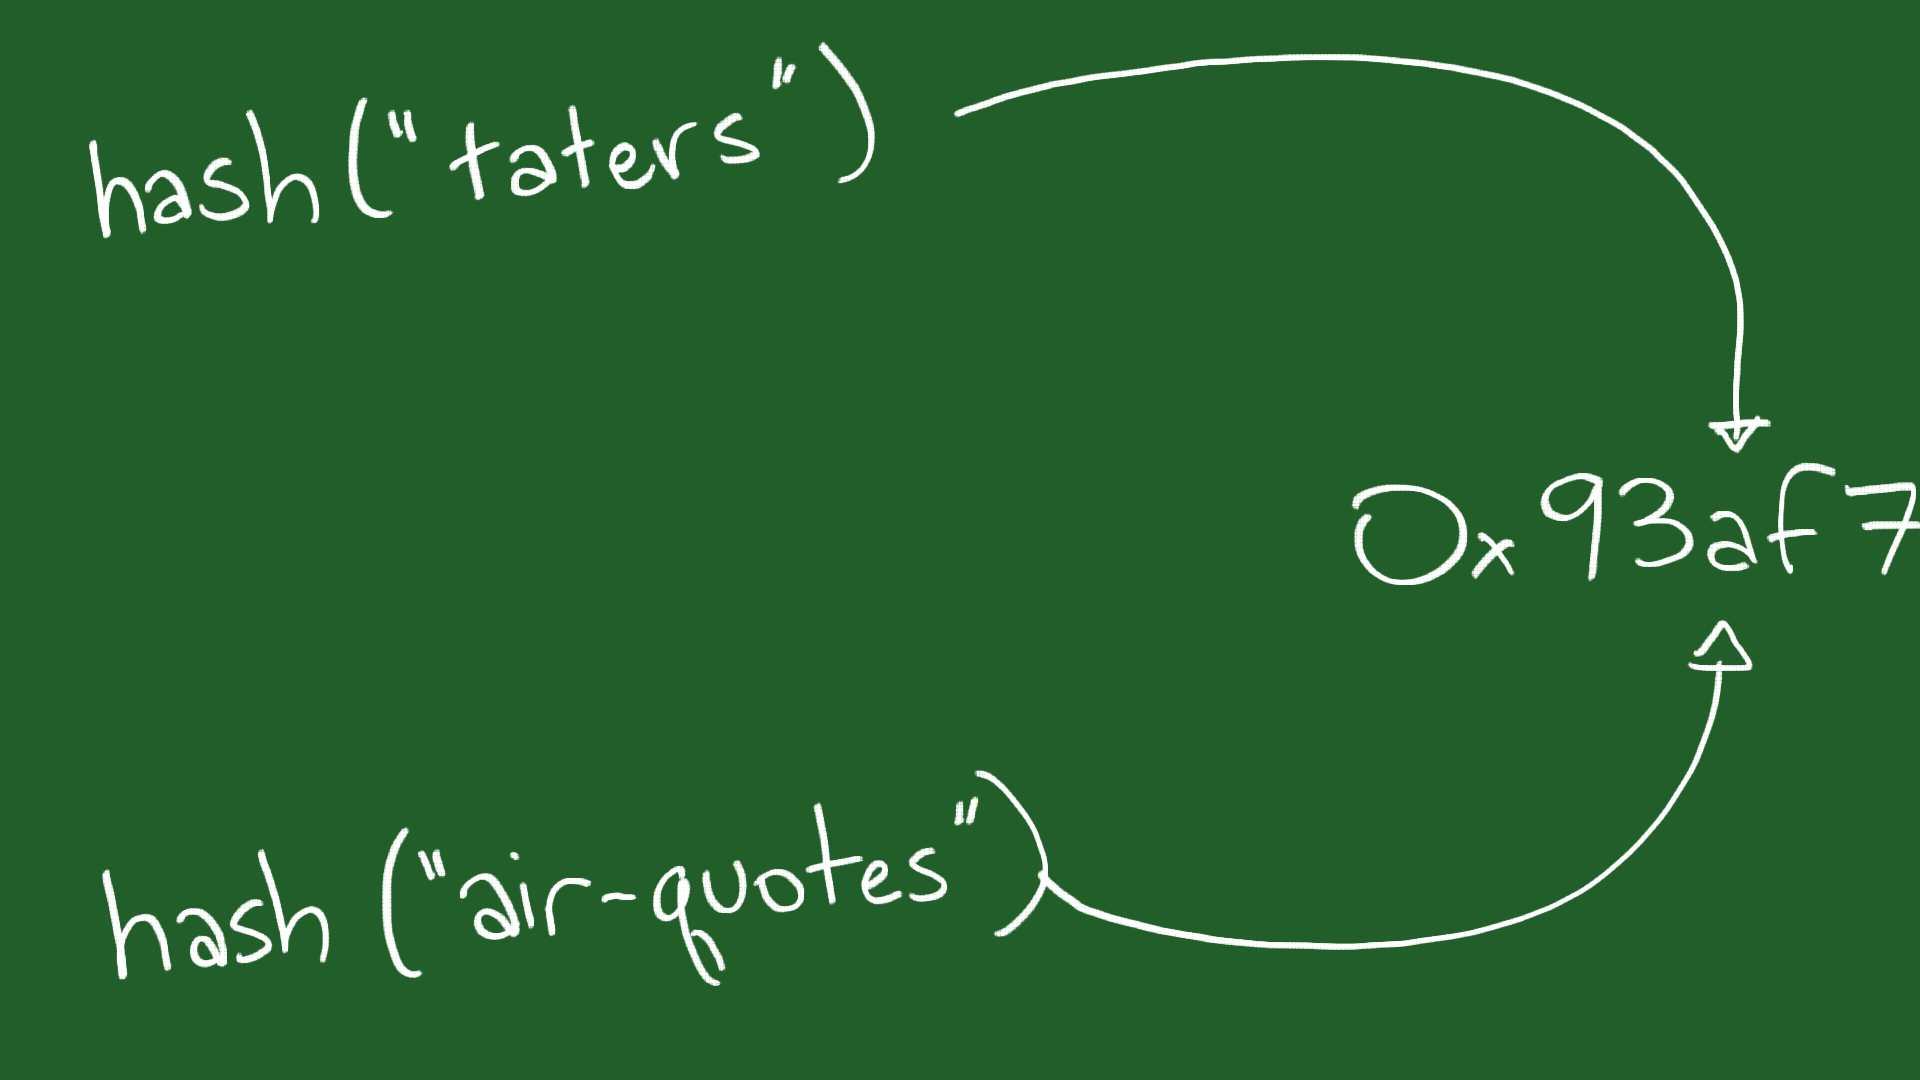 hash("taters")
0x93af7
hash("air-quotes")